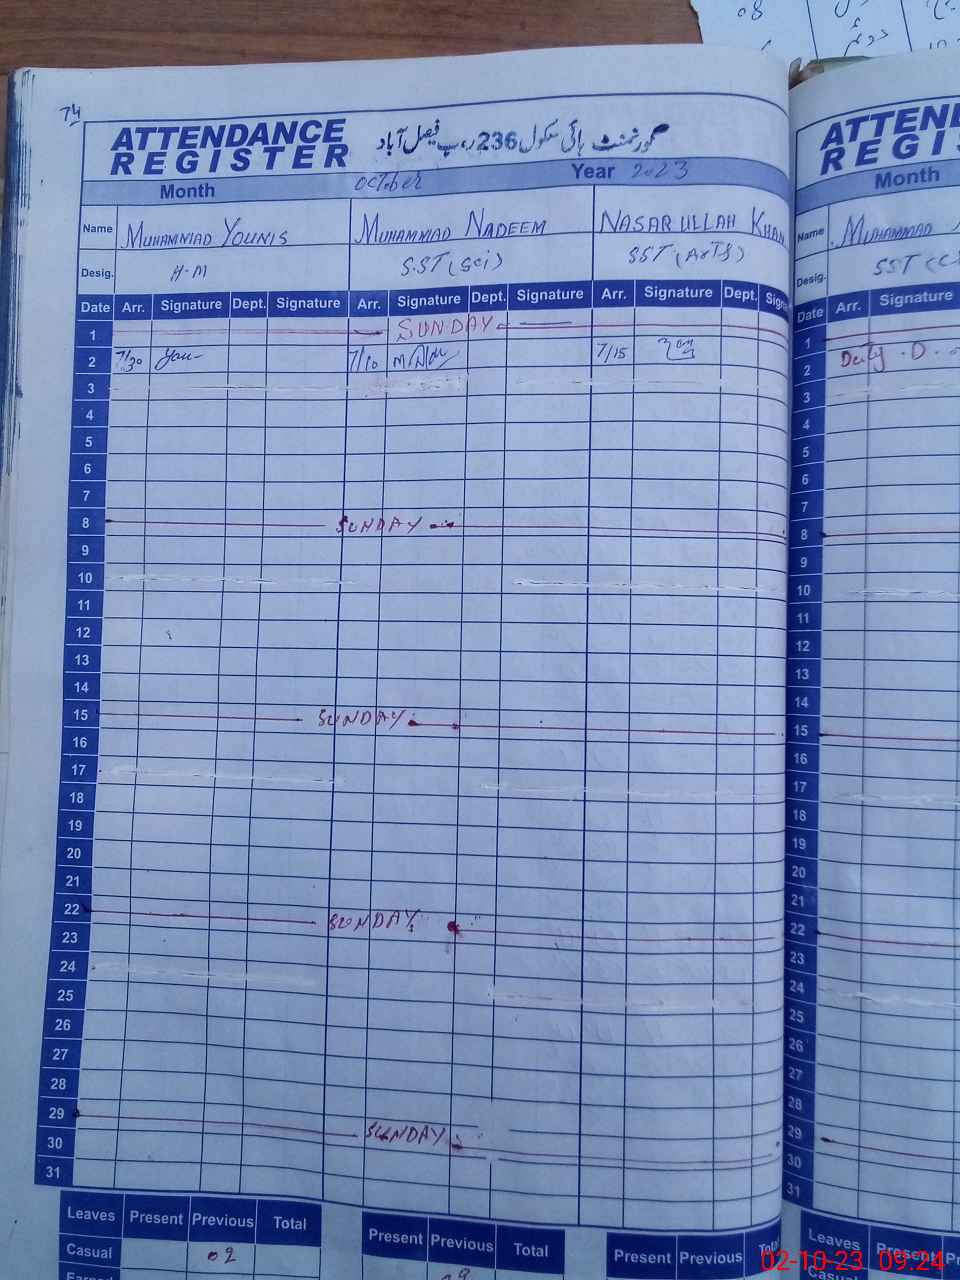 08
74
ATTENDANCE
REGISTER
گورنمنٹ ہائی سکول 236 ر۔ب فیصل آباد
Month October Year 2023
Name MUHAMMAD YOUNIS MUHAMMAD NADEEM NASARULLAH KHAN
Desig. H.M S.ST (Sci) SST (ArTS)
Date Arr. Signature Dept. Signature Arr. Signature Dept. Signature Arr. Signature Dept.
1 SUNDAY
2 7/30 7/10 7/15
3
4
5
6
7
8 SUNDAY
9
10
11
12
13
14
15 SUNDAY
16
17
18
19
20
21
22 SUNDAY
23
24
25
26
27
28
29 SUNDAY
30
31
Leaves Present Previous Total Present Previous Total Present Previous
Casual 02
ATTEN
REGIS
Month
Name MUHAMMAD
Desig. SST
Date Arr. Signature
1
2 Duty
3
4
5
6
7
8
9
10
11
12
13
14
15
16
17
18
19
20
21
22
23
24
25
26
27
28
29
30
31
Leaves Present
Casual
02-10-23 09:24